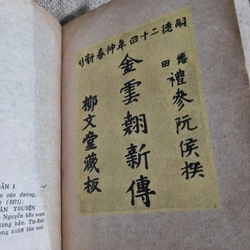 嗣德二十四年仲春新刊
僊田禮參阮侯撰
金雲翹新傳
柳文堂藏板
ẢN I
văn đường,
(1871).
TRUYỆN
Nguyễn hầu soạn
tàng bản. Tự-đức
xuân tân san